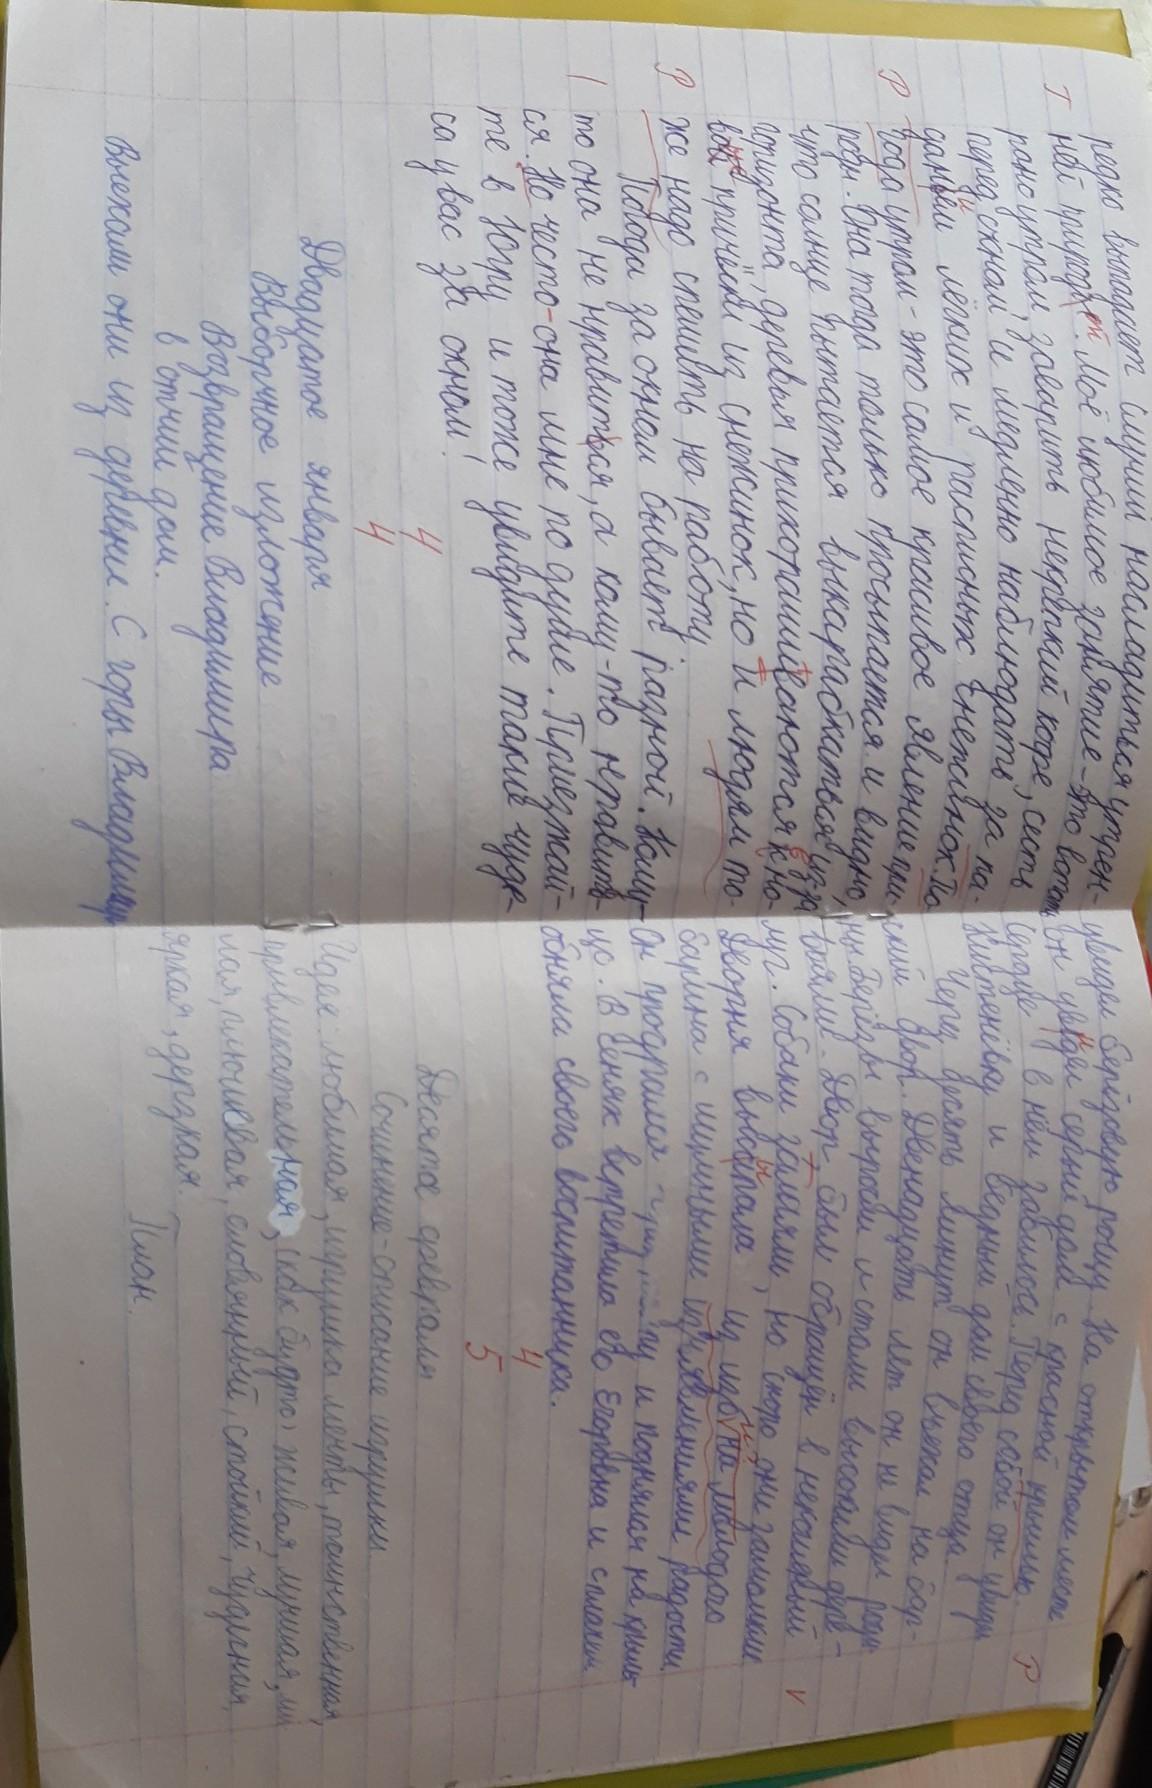 редко выпадает случий насладиться утрен-
ней природой. Моё любимое занятие - это встать
рано утром, заварить некрепкий кофе, сесть
перед окном и медленно наблюдать за па-
даньем лёгких и расписных снежинок. По-
года утром - это самое красивое явление при-
роды. Она тогда только просыпается и видно,
что солнце пытается выкарабкаться из за
горизонта, деревья прихорашиваются к но-
вой причёски из снежинок, но и людям то-
же надо спешить на работу.
Погода за окном бывает разной. Кому-
то она не нравиться, а кому-то нравит-
ся. Но често-она мне по душе. Приезжай-
те в Югру и тоже увидите такие чуде-
са у вас за окном!
4
4
Двадцатое января
Выборочное изложение
Возвращение Владимира
в отчий дом.
Выехали они из деревни. С горы Владимир
увидел берёзовую рощу. На открытом месте
он увидел серый дом с красной крышью.
Сердце в нём забилось. Перед собой он увидел
Кистенёвку и бедный дом своего отца.
Через десять минут он въехал на бар-
ский двор. Двенадцать лет он не видел роди-
ны. Берёзы выросли и стали высокими дере-
вьями. Двор был обращён в некошеный
луг. Собаки залаяли, но скоро они замолкли
Дворня высыпала из изб на молодого
барина с шумными изъявлениями радости
Он продрался и поднялся на крыль-
цо. В сенях встретила его Егоровна и слезами
обняла своего воспитанника.
4
5
Десятое февраля
Сочинение-описание игрушки
Идея: любимая, игрушка мечты, таинственная,
привлекательная, (как будто) живая, лучшая, ми-
лая, плюшевая, словянный, стойкий, чудесная,
яркая, дерзкая.
План.